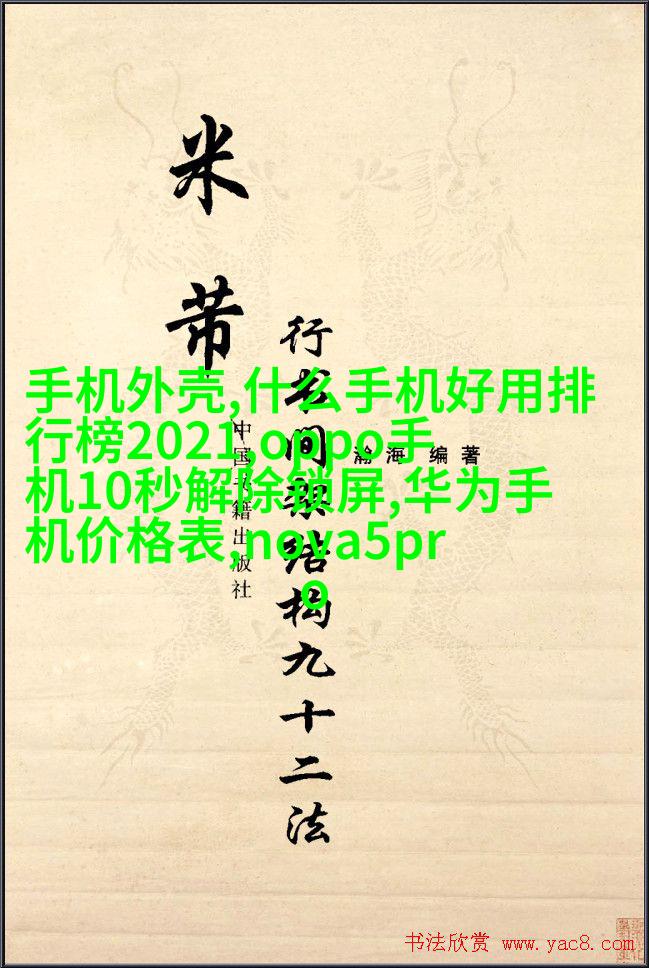 米芾
行书间架结构九十二法
瀚海 编著
中国书籍出版社
手机外壳,什么手机好用排
行榜2021,oppo手
机10秒解除锁屏,华为手
机价格表,nova5pr
o
书法欣赏 www.yac8.com